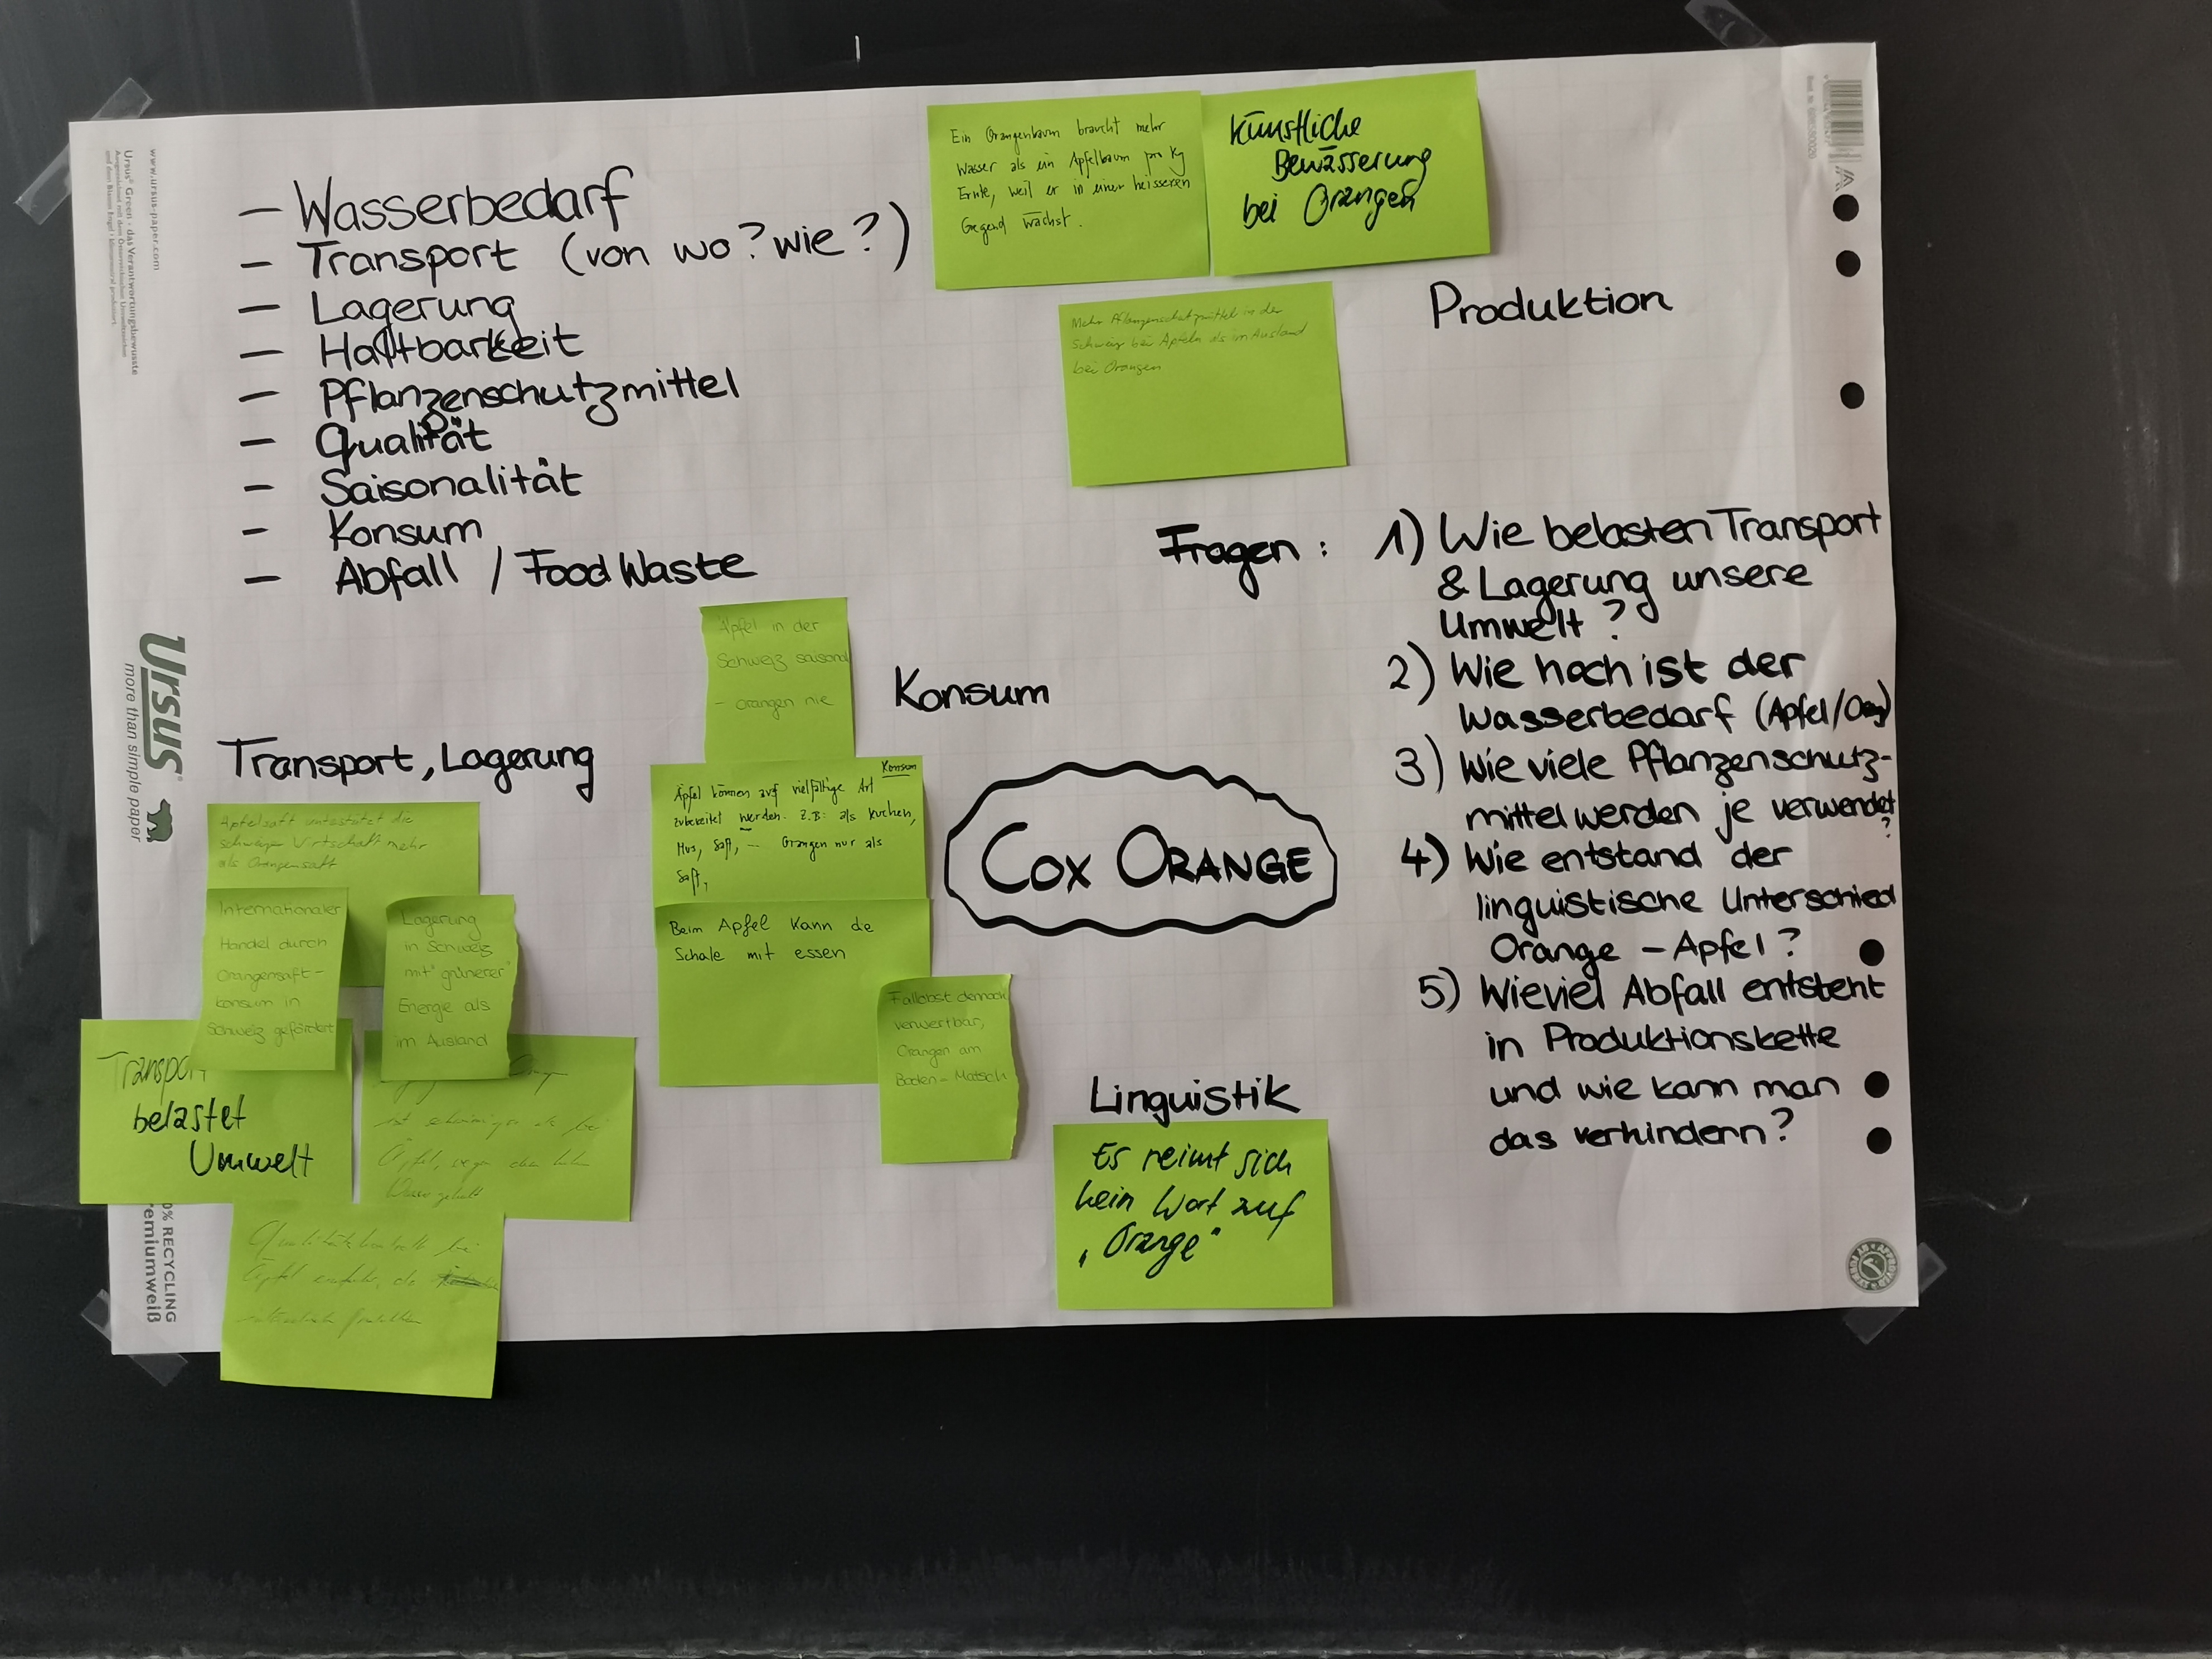 - Wasserbedarf
- Transport (von wo? wie?)
- Lagerung
- Haltbarkeit
- Pflanzenschutzmittel
- Qualität
- Saisonalität
- Konsum
- Abfall / Food Waste
Ein Orangenbaum braucht mehr
Wasser als ein Apfelbaum pro Kg
Ernte, weil er in einer heisseren
Gegend wächst.
Künstliche
Bewässerung
bei Orangen
Produktion
Mehr Pflanzenschutzmittel in der
Schweiz bei Äpfeln als im Ausland
bei Orangen
Fragen: 1) Wie belasten Transport
& Lagerung unsere
Umwelt?
2) Wie hoch ist der
Wasserbedarf (Apfel/
3) Wie viele Pflanzenschutz-
mittel werden je verwendet
?
4) Wie entstand der
linguistische Unterschied
Orange - Apfel?
5) Wieviel Abfall entsteht
in Produktionskette
und wie kann man
das verhindern?
Konsum
Äpfel in der
Schweiz saisonal
- Orangen nie
Konsum
Äpfel können auf vielfältige Art
zubereitet werden. Z.B: als Kuchen,
Mus, Saft, -- Orangen nur als
Saft,
Beim Apfel kann die
Schale mit essen
Fallobst dennoch
verwertbar,
Orangen am
Boden - Matsch
Cox Orange
Transport, Lagerung
Apfelsaft unterstützt die
schweizer Wirtschaft mehr
als Orangensaft
Internationaler
Handel durch
Orangensaft-
konsum in
Schweiz gefördert
Lagerung
in Schweiz
mit "grünerer"
Energie als
im Ausland
Transport
belastet
Umwelt
ist schwieriger als bei
Äpfel, wegen dem hohen
Wassergehalt
Qualitätskontrolle bei
Äpfel einfacher, da
Linguistik
Es reimt sich
kein Wort auf
„Orange"
www.ursus-paper.com
Ursus® Green - das Verantwortungsbewusste
Ursus®
more than simple paper
0% RECYCLING
remiumweiß